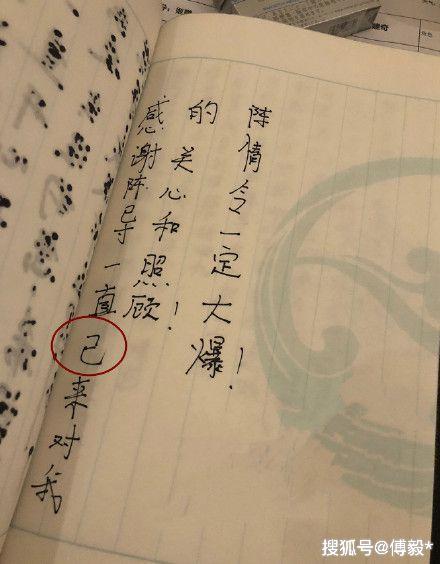 感谢陈导一直己来对我
的关心和照顾！
陈情令一定大爆！
搜狐号@傅毅*